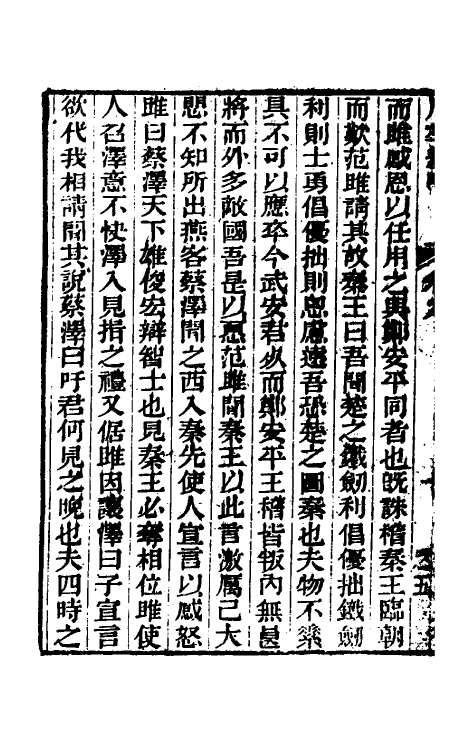 而雎感恩以任用之與鄭安平同者也旣誅稽秦王臨朝
而歎范雎請其故秦王曰吾聞楚之鐵劒利倡優拙鐵劒
利則士勇倡優拙則思慮遠吾恐楚之圖秦也夫物不
具不可以應卒今武安君死而鄭安平王稽皆叛內無良
將而外多敵國吾是以憂范雎聞秦王以此言激厲己大
慙不知所出燕客蔡澤聞之西入秦先使人宣言以感怒
雎曰蔡澤天下雄俊宏辯智士也見秦王必奪相位雎使
人召澤意不快澤入見揖之禮又倨雎因讓澤曰子宣言
欲代我相請聞其說蔡澤曰吁君何見之晚也夫四時之